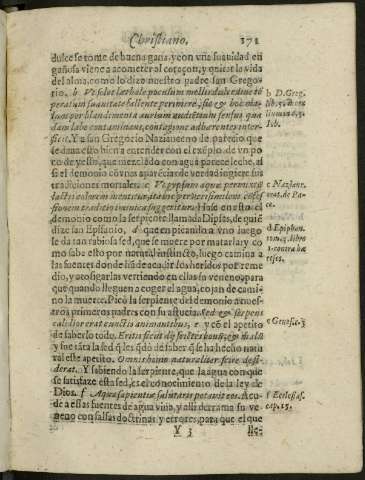 Christiano. 171
dulce se tome de buena gana, y con vna suauidad en
gañosa viene a acometer al coraçon, y quitar la vida
del alma, como lo dize nuestro padre san Grego-
rio. b Ve solet læthale poculum
peratum suauitate fallente perimere, sic & hoc ma-
lum per blandimenta aurium auditum sensus qua
dam labe contaminans, contagione adhærente inter-
ficit. Y a san Gregorio Nazianzeno de parecio que
se daua esto bien a entender con el exẽplo de vn po
co de yesso, que mezclado con agua parece leche, assi
si el demonio cõ vnas aparẽcias de verdad ingiere sus
tradiciones mortales. c Ve gypsum aquæ permixtũ
lactis colorem
Hase en esto el
demonio como la serpiente llamada Dipsis, de quiẽ
dize san Epifanio, d que en picando a vno luego
se da tan rabiosa sed, que se muere por matarla: y co
mo sabe esto por natural instincto, luego camina a
las fuentes donde hã de acudir los heridos por reme
dio, y acosigarlas vertiendo en ellas su veneno, para
que quando lleguen a coger el agua, cojan de cami-
no la muerte. Picò la serpiente del demonio a nues-
tros primeros padres con su astucia. Sed & serpens
calidior erat cunctis animantibus, e y cõ el apetito
de saberlo todo. Eritis sicut dij scientes bonũ, & malũ
y fue tãta la sed q̃ les q̃dò de saber q̃ se ha hecho natu
ral este apetito. Omnis homo naturaliter scire desi-
derat. Y sabiendo la serpiente, que la agua con que
se satisfaze esta sed, es el conocimiento de la ley de
Dios. f Aqua sapientiæ salutaris potauit eos. Acu-
de a estas fuentes de agua viua, y alli derrama su ve-
neno con falsas doctrinas y errores, para que el que
Y 3
b D. Greg.
lib.
Iob.
c Nazianz.
orat. de Pa-
ce.
d Epiphan.
tom. 3. libro
1. contra hæ
reses.
e Genesis. 3
f Ecclesias.
cap. 15.